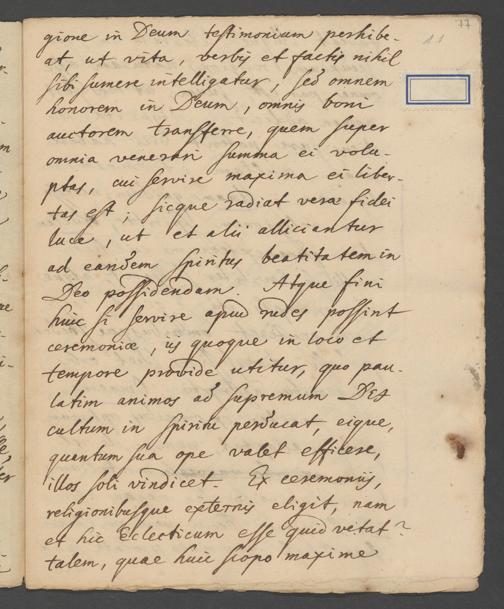 gione in Deum testimonium perhibe-
at, ut vita, verbis et factis nihil
sibi sumere intelligatur, sed omnem
honorem in Deum, omnis boni
auctorem transferre, quem super
omnia venerari summa ei volu-
ptas, cui servire maxima ei liber-
tas est; sicque radiat verae fidei
luce, ut et alii alliciantur
ad eandem spiritus beatitatem in
Deo possidendam. Atque fini
huic si servire apud rudes possint
ceremoniae, iis quoque in loco et
tempore provide utitur, quo pau-
latim animos ad supremum DEI
cultum in spiritu perducat, eique,
quantum sua ope valet efficere,
illos soli vindicet. Ex ceremoniis,
religionibusque externis eligit, nam
et hic Eclecticum esse quid vetat?
talem, quae huic scopo maxime